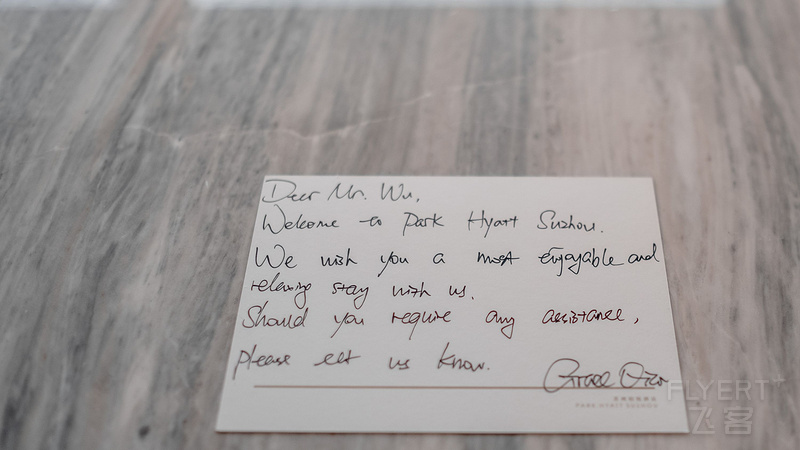 Dear Mr. Wu,
Welcome to Park Hyatt Suzhou.
We wish you a most enjoyable and
relaxing stay with us.
Should you require any assistance,
please let us know.
Grace
PARK HYATT SUZHOU
FLYERT
飞客